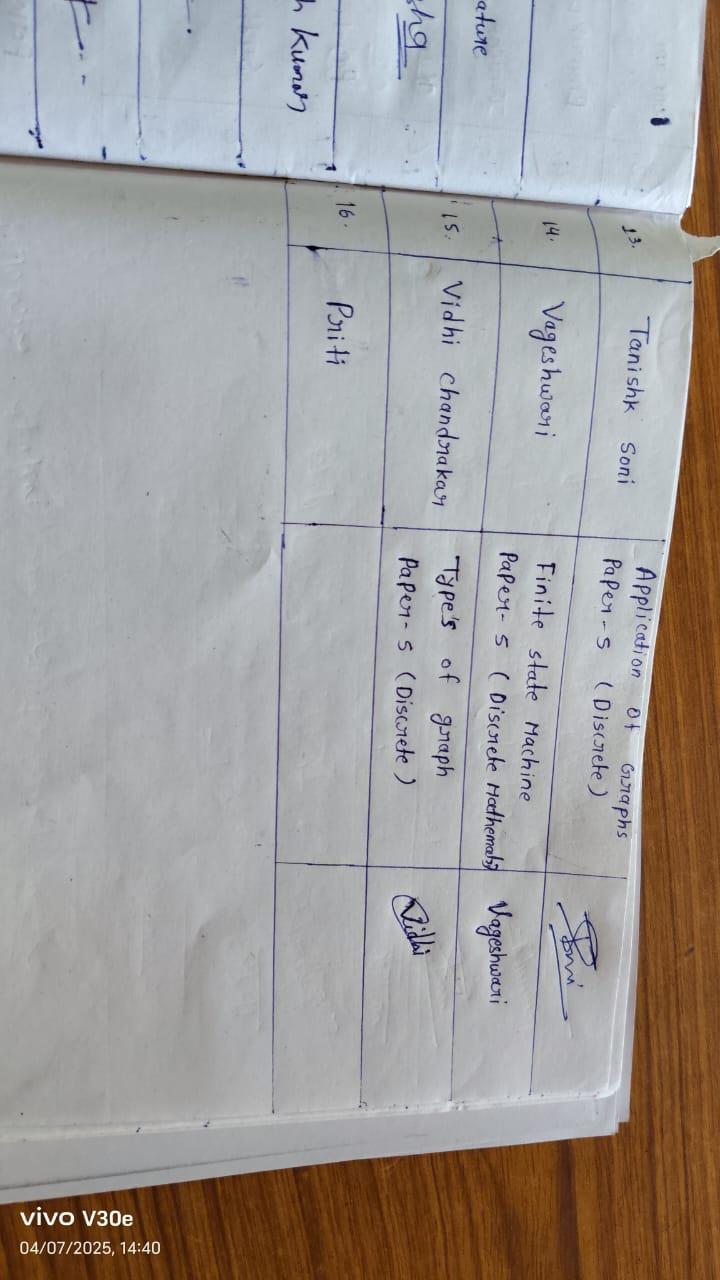 ature
h Kumar
13. Tanishk Soni Application of Graphs
Paper-5 (Discrete) Soni
14. Vageshwari Finite state Machine
Paper-5 (Discrete Mathematics) Vageshwari
15. Vidhi Chandrakar Type's of graph
Paper-5 (Discrete) Vidhi
16. Priti
vivo V30e
04/07/2025, 14:40